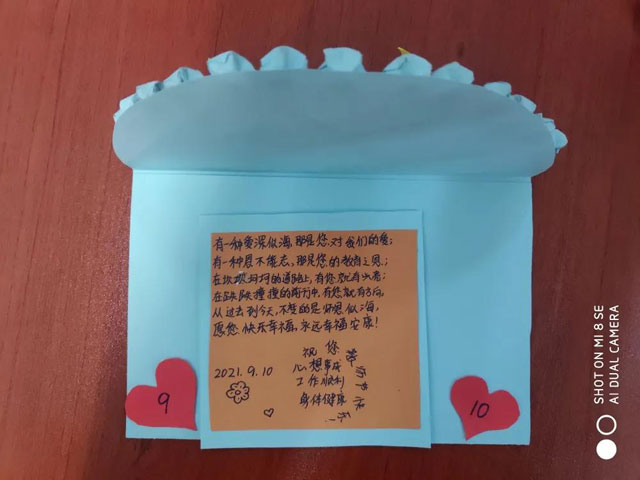 有一种爱深似海,那是您对我们的爱;
有一种恩不能忘,那是您的教育之恩;
在坎坎坷坷的道路上,有您就有光亮;
在跌跌撞撞的前行中,有您就有方向。
从过去到今天,不变的是师恩似海,
愿您快乐幸福,永远幸福安康!
祝您
心想事成
工作顺利
身体健康
2021.9.10
9
10
SHOT ON MI 8 SE
AI DUAL CAMERA